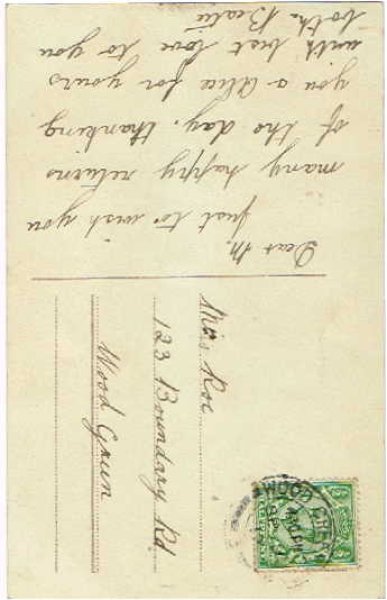 Dear M.
Just to wish you
many happy returns
of the day, thanking
you & Alice for yours
with best love to you
both. Beatie
Miss Roe
123 Boundary Rd
Wood Green
WOOD GREEN